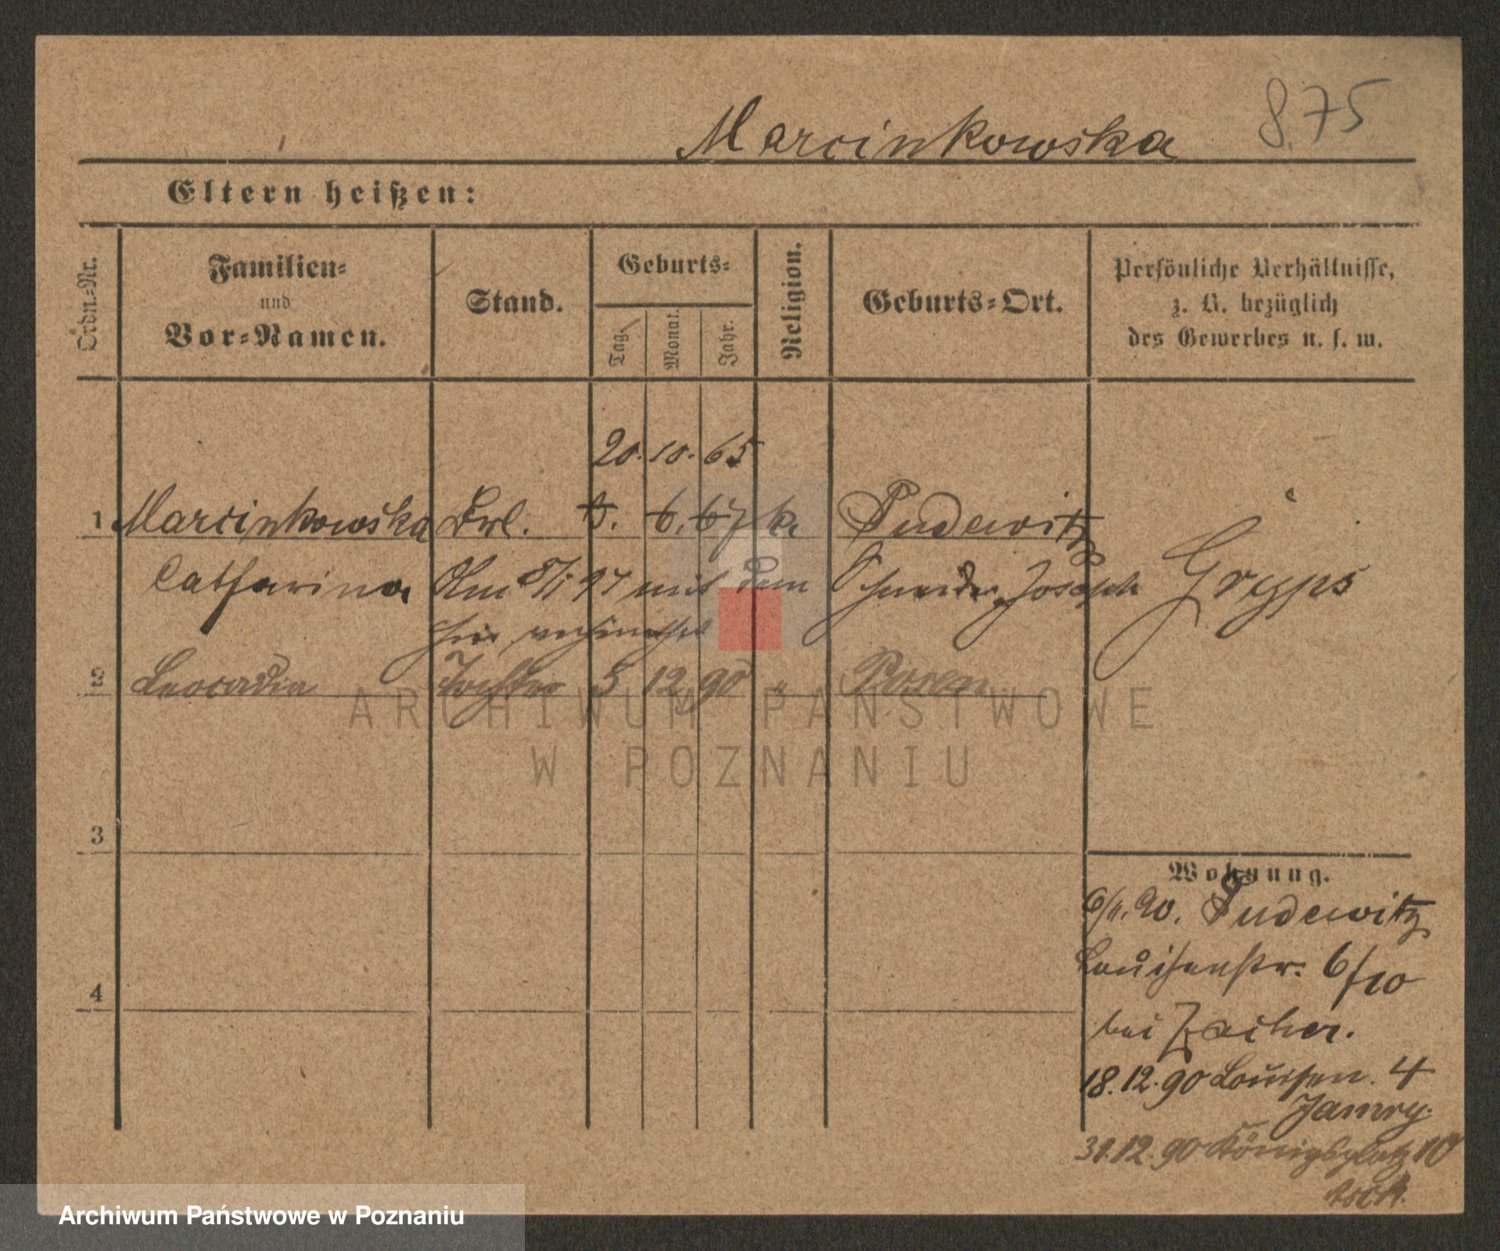 875
Marcinkowska
Eltern heißen:
Ordn.-Nr.
Familien-
und
Vor-Namen.
Stand.
Geburts-
Tag.
Monat.
Jahr.
Religion.
Geburts-Ort.
Persönliche Verhältnisse,
z. B. bezüglich
des Gewerbes u. s. w.
20. 10. 65
1 Marcinkowska Frl. 5. 6. 67 k. Pudewitz
Catharina Am 5/1 97 mit dem Schneider Joseph Gryps
hier verheirathet
2 Leocadia Tochter 5 12 90 " Posen
ARCHIWUM PAŃSTWOWE
W POZNANIU
3
4
Wohnung.
6/11. 90. Pudewitz
Louisenstr. 6/10
bei Zacher.
18.12.90 Louisen. 4
31.12.90 Königsplatz 10
Archiwum Państwowe w Poznaniu